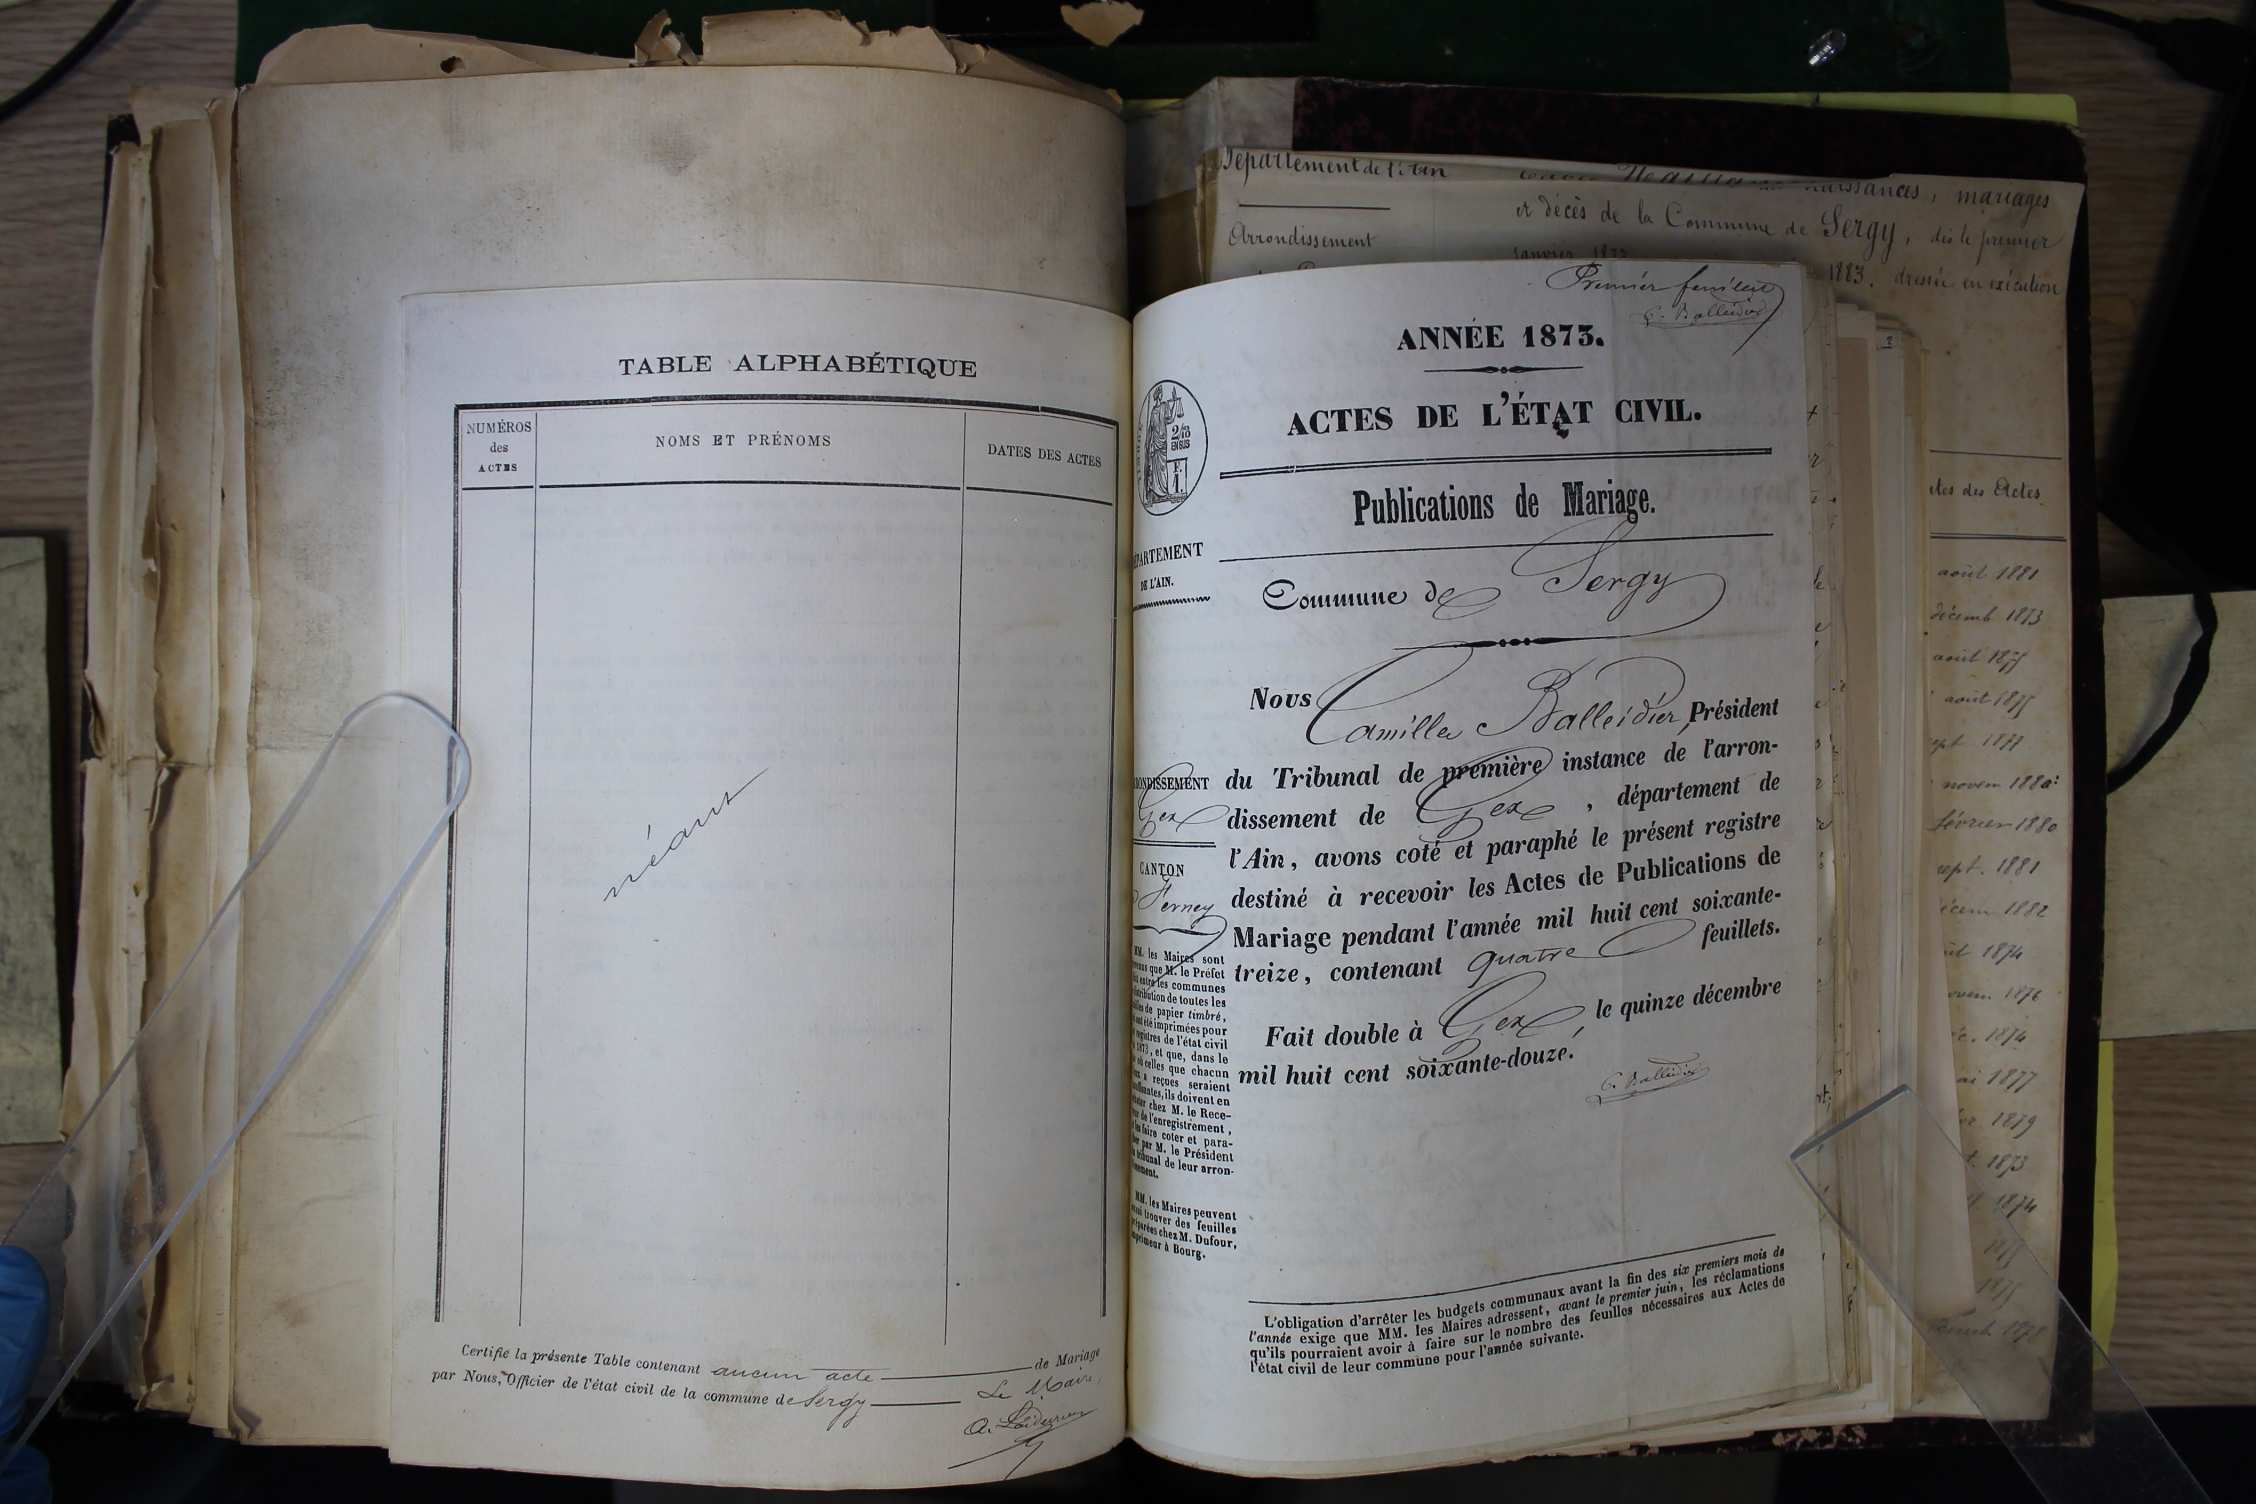 TABLE ALPHABÉTIQUE
NUMÉROS
des
ACTES
NOMS ET PRÉNOMS
DATES DES ACTES
néant
Certifie la présente Table contenant aucun acte de Mariage
par Nous, Officier de l'état civil de la commune de Sergy Le Maire,
Département de l'Ain
naissances, mariages
Arrondissement
et décès de la Commune de Sergy, dès le premier
janvier
1883. dressée en exécution
Premier feuillet
C. Balleidier
ANNÉE 1873.
ACTES DE L'ÉTAT CIVIL.
2/10
EN SUS
F.
1.
Publications de Mariage.
PARTEMENT
DE L'AIN.
Commune de Sergy
Nous Camille Balleidier, Président
du Tribunal de première instance de l'arron-
dissement de Gex, département de
l'Ain, avons coté et paraphé le présent registre
destiné à recevoir les Actes de Publications de
Mariage pendant l'année mil huit cent soixante-
treize, contenant quatre feuillets.
Fait double à Gex, le quinze décembre
mil huit cent soixante-douze.
C. Balleidier
ONDISSEMENT
Gex
CANTON
Ferney
MM. les Maires sont
que M. le Préfet
entre les communes
tribution de toutes les
de papier timbré,
ont été imprimées pour
registres de l'état civil
1873, et que, dans le
où celles que chacun
a reçues seraient
, ils doivent en
chez M. le Rece-
de l'enregistrement,
les faire coter et para-
par M. le Président
tribunal de leur arron-
MM. les Maires peuvent
trouver des feuilles
chez M. Dufour,
imprimeur à Bourg.
L'obligation d'arrêter les budgets communaux avant la fin des six premiers mois de
l'année exige que MM. les Maires adressent, avant le premier juin, les réclamations
qu'ils pourraient avoir à faire sur le nombre des feuilles nécessaires aux Actes de
l'état civil de leur commune pour l'année suivante.
des Actes
août 1881
décemb 1873
août 1875
août 1875
sept 1877
novem 1880
février 1880
sept. 1881
décem 1882
1874
novem. 1876
1874
1877
1879
1873
1874